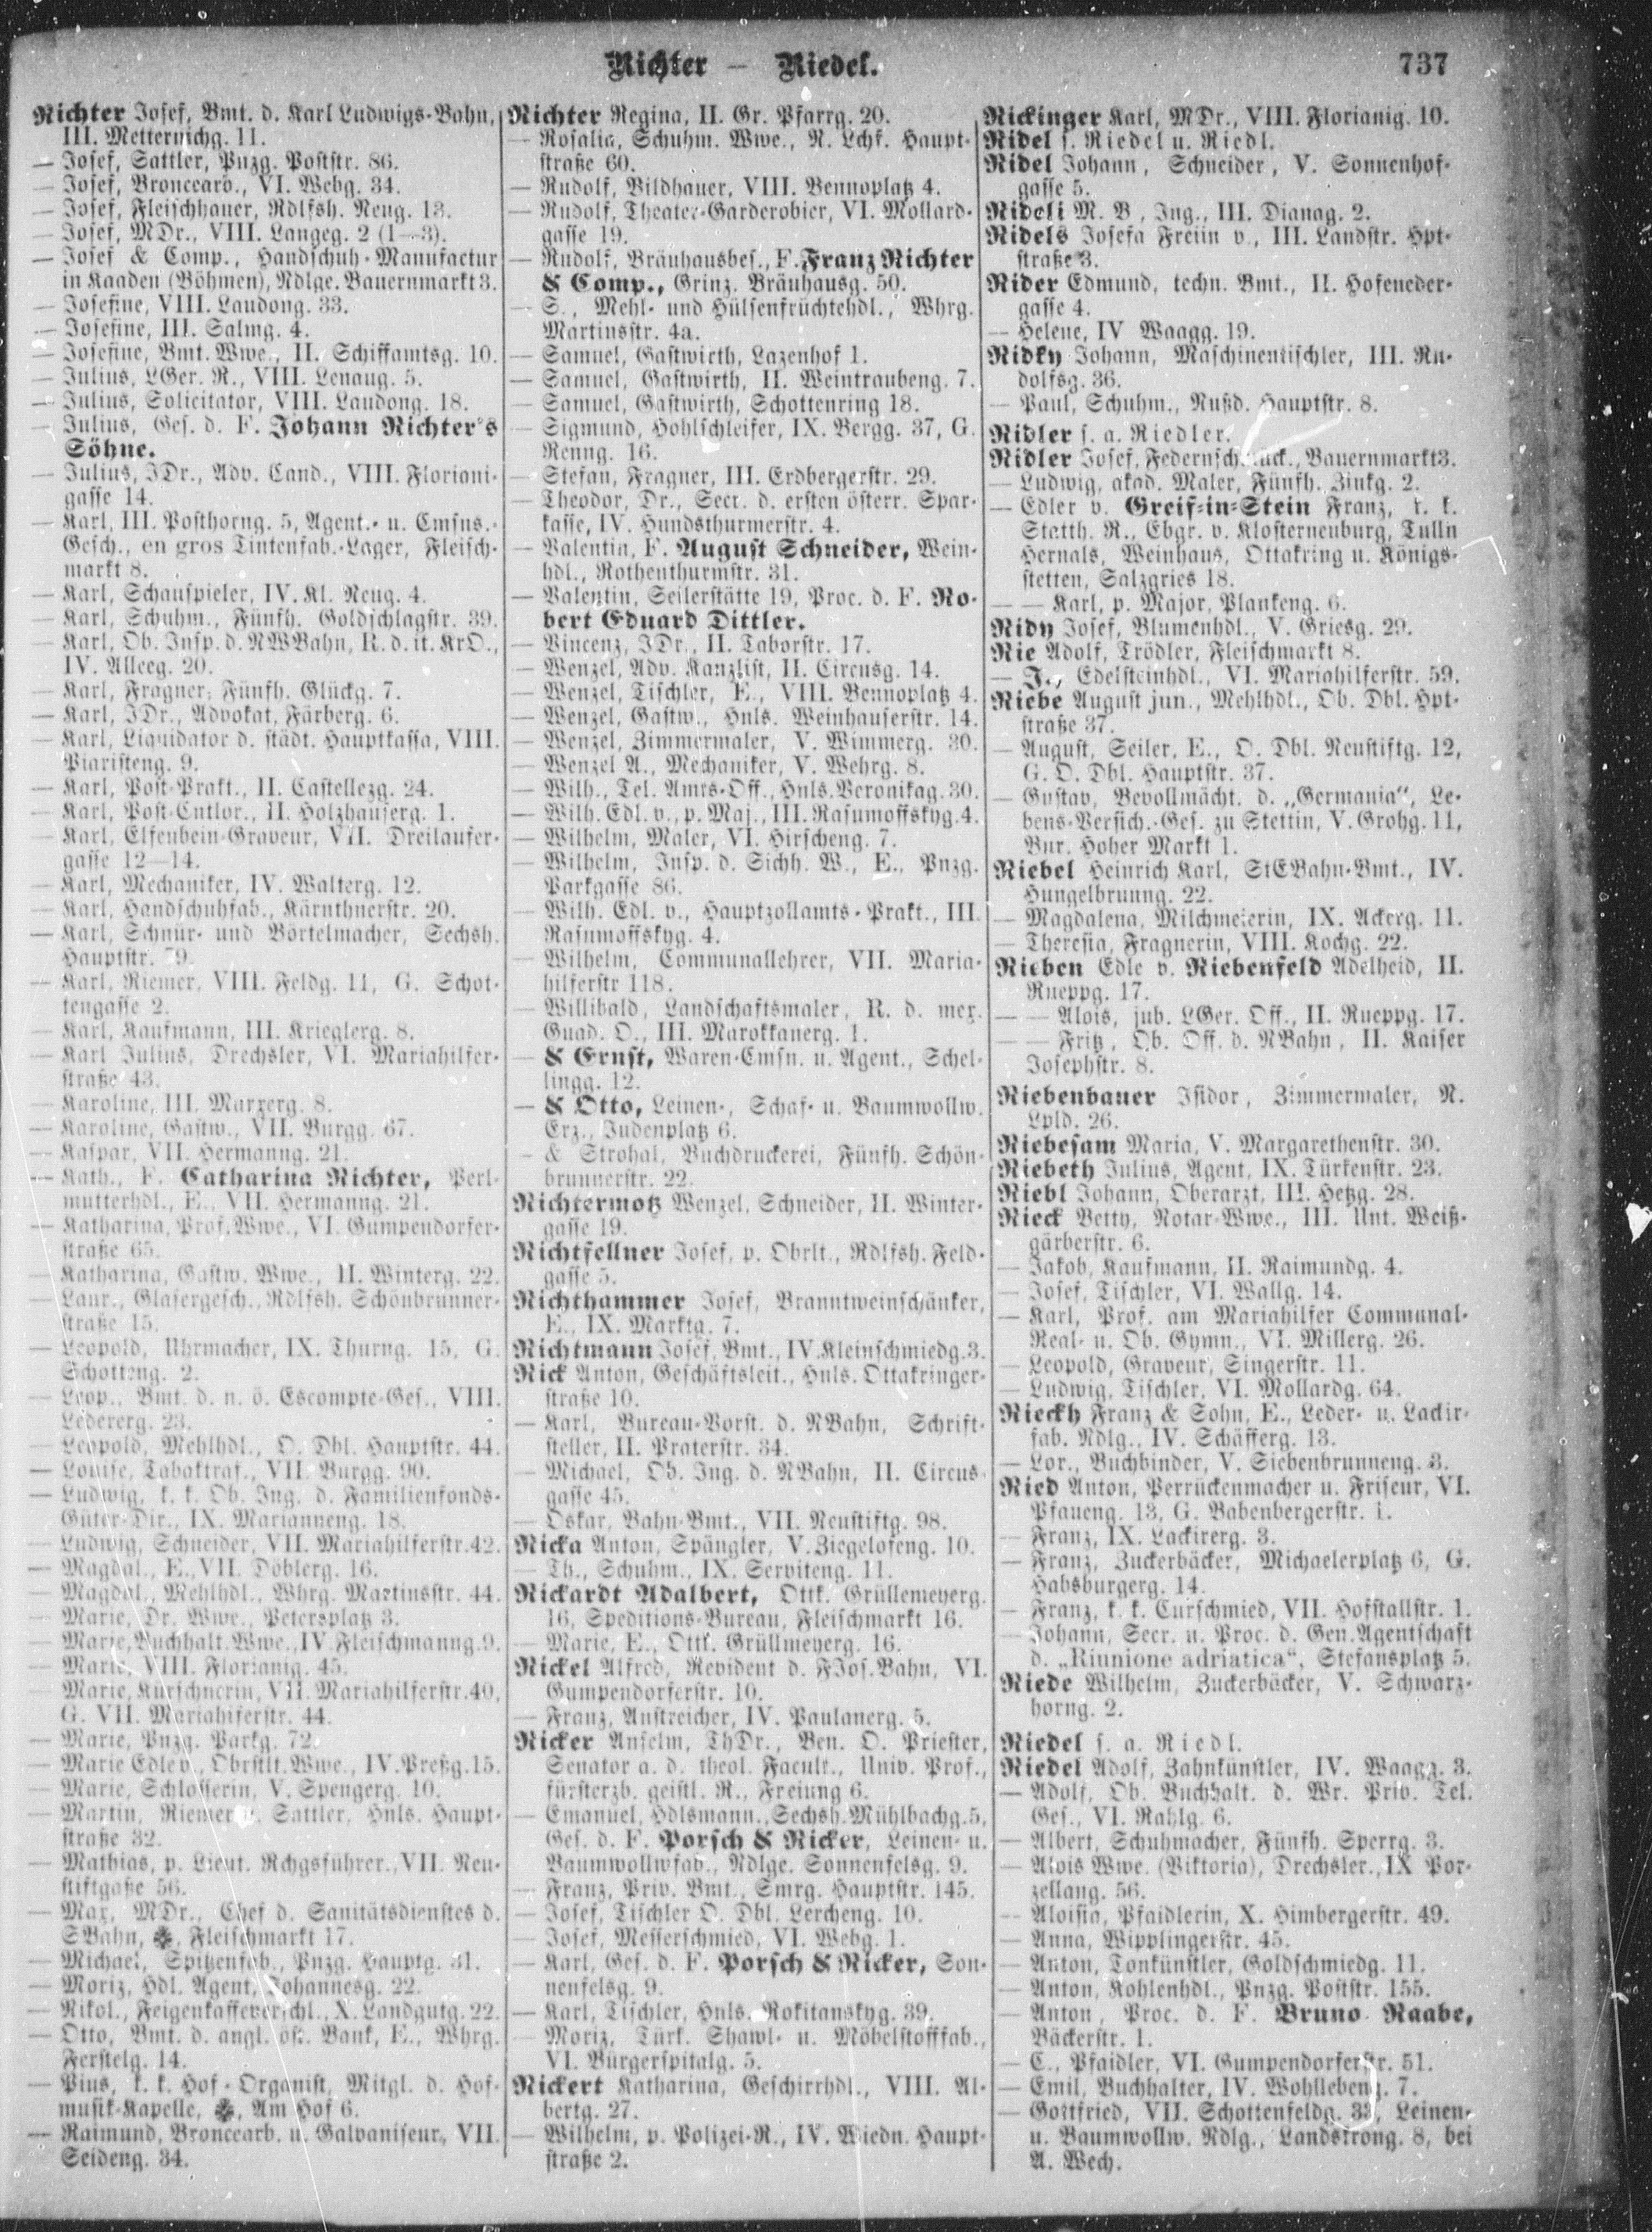 Richter — Riedel.
737
Richter Josef, Bmt. d. Karl Ludwigs-Bahn,
III. Metternichg. 11.
— Josef, Sattler, Pnzg. Poststr. 86.
— Josef, Broncearb., VI. Webg. 34.
— Josef, Fleischhauer, Rdlfsh. Neug. 13.
— Josef, MDr., VIII. Langeg. 2 (1—3).
— Josef & Comp., Handschuh-Manufactur
in Kaaden (Böhmen), Ndlge. Bauernmarkt 3.
— Josefine, VIII. Laudong. 33.
— Josefine, III. Salmg. 4.
— Josefine, Bmt. Wwe., II. Schiffamtsg. 10.
— Julius, LGer. R., VIII. Lenaug. 5.
— Julius, Solicitator, VIII. Laudong. 18.
— Julius, Ges. d. F. Johann Richter's
Söhne.
— Julius, JDr., Adv. Cand., VIII. Floriani-
gasse 14.
— Karl, III. Posthorng. 5, Agent.- u. Cmsns.-
Gesch., en gros Tintenfab.-Lager, Fleisch-
markt 8.
— Karl, Schauspieler, IV. Kl. Neug. 4.
— Karl, Schuhm., Fünfh. Goldschlagstr. 39.
— Karl, Ob. Insp. d. NWBahn, R. d. it. KrO.,
IV. Alleeg. 20.
— Karl, Fragner, Fünfh. Glückg. 7.
— Karl, JDr., Advokat, Färberg. 6.
— Karl, Liquidator d. städt. Hauptkassa, VIII.
Piaristeng. 9.
— Karl, Post-Prakt., II. Castellezg. 24.
— Karl, Post-Cntlor., II. Holzhauserg. 1.
— Karl, Elfenbein-Graveur, VII. Dreilaufer-
gasse 12—14.
— Karl, Mechaniker, IV. Walterg. 12.
— Karl, Handschuhfab., Kärnthnerstr. 20.
— Karl, Schnür- und Börtelmacher, Sechsh.
Hauptstr. 79.
— Karl, Riemer, VIII. Feldg. 11, G. Schot-
tengasse 2.
— Karl, Kaufmann, III. Krieglerg. 8.
— Karl Julius, Drechsler, VI. Mariahilfer-
straße 43.
— Karoline, III. Marxerg. 8.
— Karoline, Gastw., VII. Burgg. 67.
— Kaspar, VII. Hermanng. 21.
— Kath., F. Catharina Richter, Perl-
mutterhdl., E., VII. Hermanng. 21.
— Katharina, Prof. Wwe., VI. Gumpendorfer-
straße 65.
— Katharina, Gastw. Wwe., II. Winterg. 22.
— Laur., Glasergesch., Rdlfsh. Schönbrunner-
straße 15.
— Leopold, Uhrmacher, IX. Thurng. 15, G.
Schotteng. 2.
— Leop., Bmt. d. n. ö. Escompte-Ges., VIII.
Ledererg. 23.
— Leopold, Mehlhdl., O. Dbl. Hauptstr. 44.
— Louise, Tabaktraf., VII. Burgg. 90.
— Ludwig, k. k. Ob. Ing. d. Familienfonds-
Güter-Dir., IX. Marianneng. 18.
— Ludwig, Schneider, VII. Mariahilferstr. 42.
— Magdal., E., VII. Döblerg. 16.
— Magdal., Mehlhdl., Whrg. Martinsstr. 44.
— Marie, Dr. Wwe., Petersplatz 3.
— Marie, Buchhalt. Wwe., IV. Fleischmanng. 9.
— Marie, VIII. Florianig. 45.
— Marie, Kürschnerin, VII. Mariahilferstr. 40,
G. VII. Mariahilferstr. 44.
— Marie, Pnzg. Parkg. 72.
— Marie Edle v., Obrstlt. Wwe., IV. Preßg. 15.
— Marie, Schlosserin, V. Spengerg. 10.
— Martin, Riemer u. Sattler, Hnls. Haupt-
straße 32.
— Mathias, p. Lieut. Rchgsführer., VII. Neu-
stiftgasse 56.
— Max, MDr., Chef d. Sanitätsdienstes d.
SBahn, Fleischmarkt 17.
— Michael, Spitzenfab., Pnzg. Hauptg. 31.
— Moriz, Hdl. Agent, Johannesg. 22.
— Nikol., Feigenkaffeeverschl., X. Landgutg. 22.
— Otto, Bmt. d. angl. öst. Bank, E., Whrg.
Ferstelg. 14.
— Pius, k. k. Hof-Organist, Mitgl. d. Hof-
musik-Kapelle, Am Hof 6.
— Raimund, Broncearb. u. Galvaniseur, VII.
Seideng. 34.
Richter Regina, II. Gr. Pfarrg. 20.
— Rosalia, Schuhm. Wwe., N. Lchf. Haupt-
straße 60.
— Rudolf, Bildhauer, VIII. Bennoplatz 4.
— Rudolf, Theater-Garderobier, VI. Mollard-
gasse 19.
— Rudolf, Bräuhausbes., F. Franz Richter
& Comp., Grinz. Bräuhausg. 50.
— S., Mehl- und Hülsenfrüchtehdl., Whrg.
Martinsstr. 4a.
— Samuel, Gastwirth, Lazenhof 1.
— Samuel, Gastwirth, II. Weintraubeng. 7.
— Samuel, Gastwirth, Schottenring 18.
— Sigmund, Hohlschleifer, IX. Bergg. 37, G.
Renng. 16.
— Stefan, Fragner, III. Erdbergerstr. 29.
— Theodor, Dr., Secr. d. ersten österr. Spar-
kasse, IV. Hundsthurmerstr. 4.
— Valentin, F. August Schneider, Wein-
hdl., Rothenthurmstr. 31.
— Valentin, Seilerstätte 19, Proc. d. F. Ro-
bert Eduard Dittler.
— Vincenz, JDr., II. Taborstr. 17.
— Wenzel, Adv. Kanzlist, II. Circusg. 14.
— Wenzel, Tischler, E., VIII. Bennoplatz 4.
— Wenzel, Gastw., Hnls. Weinhauserstr. 14.
— Wenzel, Zimmermaler, V. Wimmerg. 30.
— Wenzel A., Mechaniker, V. Wehrg. 8.
— Wilh., Tel. Amts-Off., Hnls. Veronikag. 30.
— Wilh. Edl. v., p. Maj., III. Rasumoffskyg. 4.
— Wilhelm, Maler, VI. Hirscheng. 7.
— Wilhelm, Insp. d. Sichh. W., E., Pnzg.
Parkgasse 86.
— Wilh. Edl. v., Hauptzollamts-Prakt., III.
Rasumoffskyg. 4.
— Wilhelm, Communallehrer, VII. Maria-
hilferstr 118.
— Willibald, Landschaftsmaler, R. d. mex.
Guad. O., III. Marokkanerg. 1.
— & Ernst, Waren-Cmsn. u. Agent., Schel-
lingg. 12.
— & Otto, Leinen-, Schaf- u. Baumwollw.
Erz., Judenplatz 6.
— & Strohal, Buchdruckerei, Fünfh. Schön-
brunnerstr. 22.
Richtermotz Wenzel, Schneider, II. Winter-
gasse 19.
Richtfellner Josef, p. Obrlt., Rdlfsh. Feld-
gasse 5.
Richthammer Josef, Branntweinschänker,
E., IX. Marktg. 7.
Richtmann Josef, Bmt., IV. Kleinschmiedg. 3.
Rick Anton, Geschäftsleit., Hnls. Ottakringer-
straße 10.
— Karl, Bureau-Vorst. d. NBahn, Schrift-
steller, II. Praterstr. 34.
— Michael, Ob. Ing. d. NBahn, II. Circus-
gasse 45.
— Oskar, Bahn-Bmt., VII. Neustiftg. 98.
Ricka Anton, Spängler, V. Ziegelofeng. 10.
— Th., Schuhm., IX. Serviteng. 11.
Rickardt Adalbert, Ottk. Grüllemeyerg.
16, Speditions-Bureau, Fleischmarkt 16.
— Marie, E., Ottk. Grüllmeyerg. 16.
Rickel Alfred, Revident d. FJos. Bahn, VI.
Gumpendorferstr. 10.
— Franz, Anstreicher, IV. Paulanerg. 5.
Ricker Anselm, ThDr., Ben. O. Priester,
Senator a. d. theol. Facult., Univ. Prof.,
fürsterzb. geistl. R., Freiung 6.
— Emanuel, Hdlsmann., Sechsh. Mühlbachg. 5,
Ges. d. F. Porsch & Ricker, Leinen- u.
Baumwollwfab., Ndlge. Sonnenfelsg. 9.
— Franz, Priv. Bmt., Smrg. Hauptstr. 145.
— Josef, Tischler O. Dbl. Lercheng. 10.
— Josef, Messerschmied, VI. Webg. 1.
— Karl, Ges. d. F. Porsch & Ricker, Son-
nenfelsg. 9.
— Karl, Tischler, Hnls. Rokitanskyg. 39.
— Moriz, Türk. Shawl- u. Möbelstofffab.,
VI. Bürgerspitalg. 5.
Rickert Katharina, Geschirrhdl., VIII. Al-
bertg. 27.
— Wilhelm, p. Polizei-R., IV. Wiedn. Haupt-
straße 2.
Rickinger Karl, MDr., VIII. Florianig. 10.
Ridel s. Riedel u. Riedl.
Ridel Johann, Schneider, V. Sonnenhof-
gasse 5.
Rideli M. B, Ing., III. Dianag. 2.
Ridels Josefa Freiin v., III. Landstr. Hpt-
straße 3.
Rider Edmund, techn. Bmt., II. Hofeneder-
gasse 4.
— Helene, IV Waagg. 19.
Ridky Johann, Maschinentischler, III. Ru-
dolfsg. 36.
— Paul, Schuhm., Nußd. Hauptstr. 8.
Ridler s. a. Riedler.
Ridler Josef, Federnschmück., Bauernmarkt 3.
— Ludwig, akad. Maler, Fünfh. Zinkg. 2.
— Edler v. Greif-in-Stein Franz, k. k.
Statth. R., Ebgr. v. Klosterneuburg, Tulln
Hernals, Weinhaus, Ottakring u. Königs-
stetten, Salzgries 18.
— — Karl, p. Major, Plankeng. 6.
Ridy Josef, Blumenhdl., V. Griesg. 29.
Rie Adolf, Trödler, Fleischmarkt 8.
— J., Edelsteinhdl., VI. Mariahilferstr. 59.
Riebe August jun., Mehlhdl., Ob. Dbl. Hpt-
straße 37.
— August, Seiler, E., O. Dbl. Neustiftg. 12,
G. O. Dbl. Hauptstr. 37.
— Gustav, Bevollmächt. d. „Germania", Le-
bens-Versich.-Ges. zu Stettin, V. Grohg. 11,
Bur. Hoher Markt 1.
Riebel Heinrich Karl, StEBahn-Bmt., IV.
Hungelbrunng. 22.
— Magdalena, Milchmeierin, IX. Ackerg. 11.
— Theresia, Fragnerin, VIII. Kochg. 22.
Rieben Edle v. Riebenfeld Adelheid, II.
Rueppg. 17.
— — Alois, jub. LGer. Off., II. Rueppg. 17.
— — Fritz, Ob. Off. d. NBahn, II. Kaiser
Josephstr. 8.
Riebenbauer Isidor, Zimmermaler, N.
Lpld. 26.
Riebesam Maria, V. Margarethenstr. 30.
Riebeth Julius, Agent, IX. Türkenstr. 23.
Riebl Johann, Oberarzt, III. Hetzg. 28.
Rieck Betty, Notar-Wwe., III. Unt. Weiß-
gärberstr. 6.
— Jakob, Kaufmann, II. Raimundg. 4.
— Josef, Tischler, VI. Wallg. 14.
— Karl, Prof. am Mariahilfer Communal-
Real- u. Ob. Gymn., VI. Millerg. 26.
— Leopold, Graveur, Singerstr. 11.
— Ludwig, Tischler, VI. Mollardg. 64.
Rieckh Franz & Sohn, E., Leder- u. Lackir-
fab. Ndlg., IV. Schäfferg. 13.
— Lor., Buchbinder, V. Siebenbrunneng. 3.
Ried Anton, Perrückenmacher u. Friseur, VI.
Pfaueng. 13, G. Babenbergerstr. 1.
— Franz, IX. Lackirerg. 3.
— Franz, Zuckerbäcker, Michaelerplatz 6, G.
Habsburgerg. 14.
— Franz, k. k. Curschmied, VII. Hofstallstr. 1.
— Johann, Secr. u. Proc. d. Gen. Agentschaft
d. „Riunione adriatica", Stefansplatz 5.
Riede Wilhelm, Zuckerbäcker, V. Schwarz-
horng. 2.
Riedel s. a. Riedl.
Riedel Adolf, Zahnkünstler, IV. Waagg. 3.
— Adolf, Ob. Buchhalt. d. Wr. Priv. Tel.
Ges., VI. Rahlg. 6.
— Albert, Schuhmacher, Fünfh. Sperrg. 3.
— Alois Wwe. (Viktoria), Drechsler., IX Por-
zellang. 56.
— Aloisia, Pfaidlerin, X. Himbergerstr. 49.
— Anna, Wipplingerstr. 45.
— Anton, Tonkünstler, Goldschmiedg. 11.
— Anton, Kohlenhdl., Pnzg. Poststr. 155.
— Anton, Proc. d. F. Bruno Raabe,
Bäckerstr. 1.
— C., Pfaidler, VI. Gumpendorferstr. 51.
— Emil, Buchhalter, IV. Wohllebeng. 7.
— Gottfried, VII. Schottenfeldg. 33, Leinen-
u. Baumwollw. Ndlg., Landskrong. 8, bei
A. Wech.